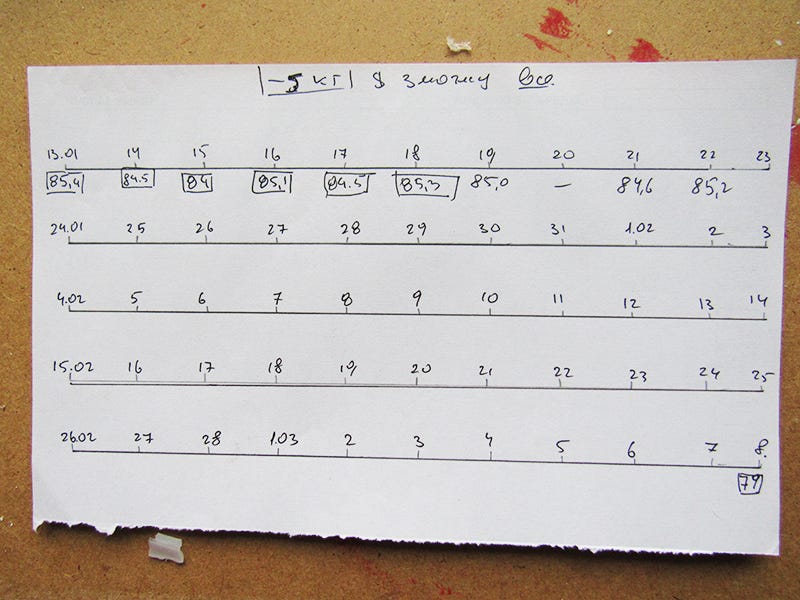 -5 кг я зможу все.
13.01 14 15 16 17 18 19 20 21 22 23
85,4 84.5 84 85,1 84.5 85,3 85,0 – 84,6 85,2
24.01 25 26 27 28 29 30 31 1.02 2 3
4.02 5 6 7 8 9 10 11 12 13 14
15.02 16 17 18 19 20 21 22 23 24 25
26.02 27 28 1.03 2 3 4 5 6 7 8.
79